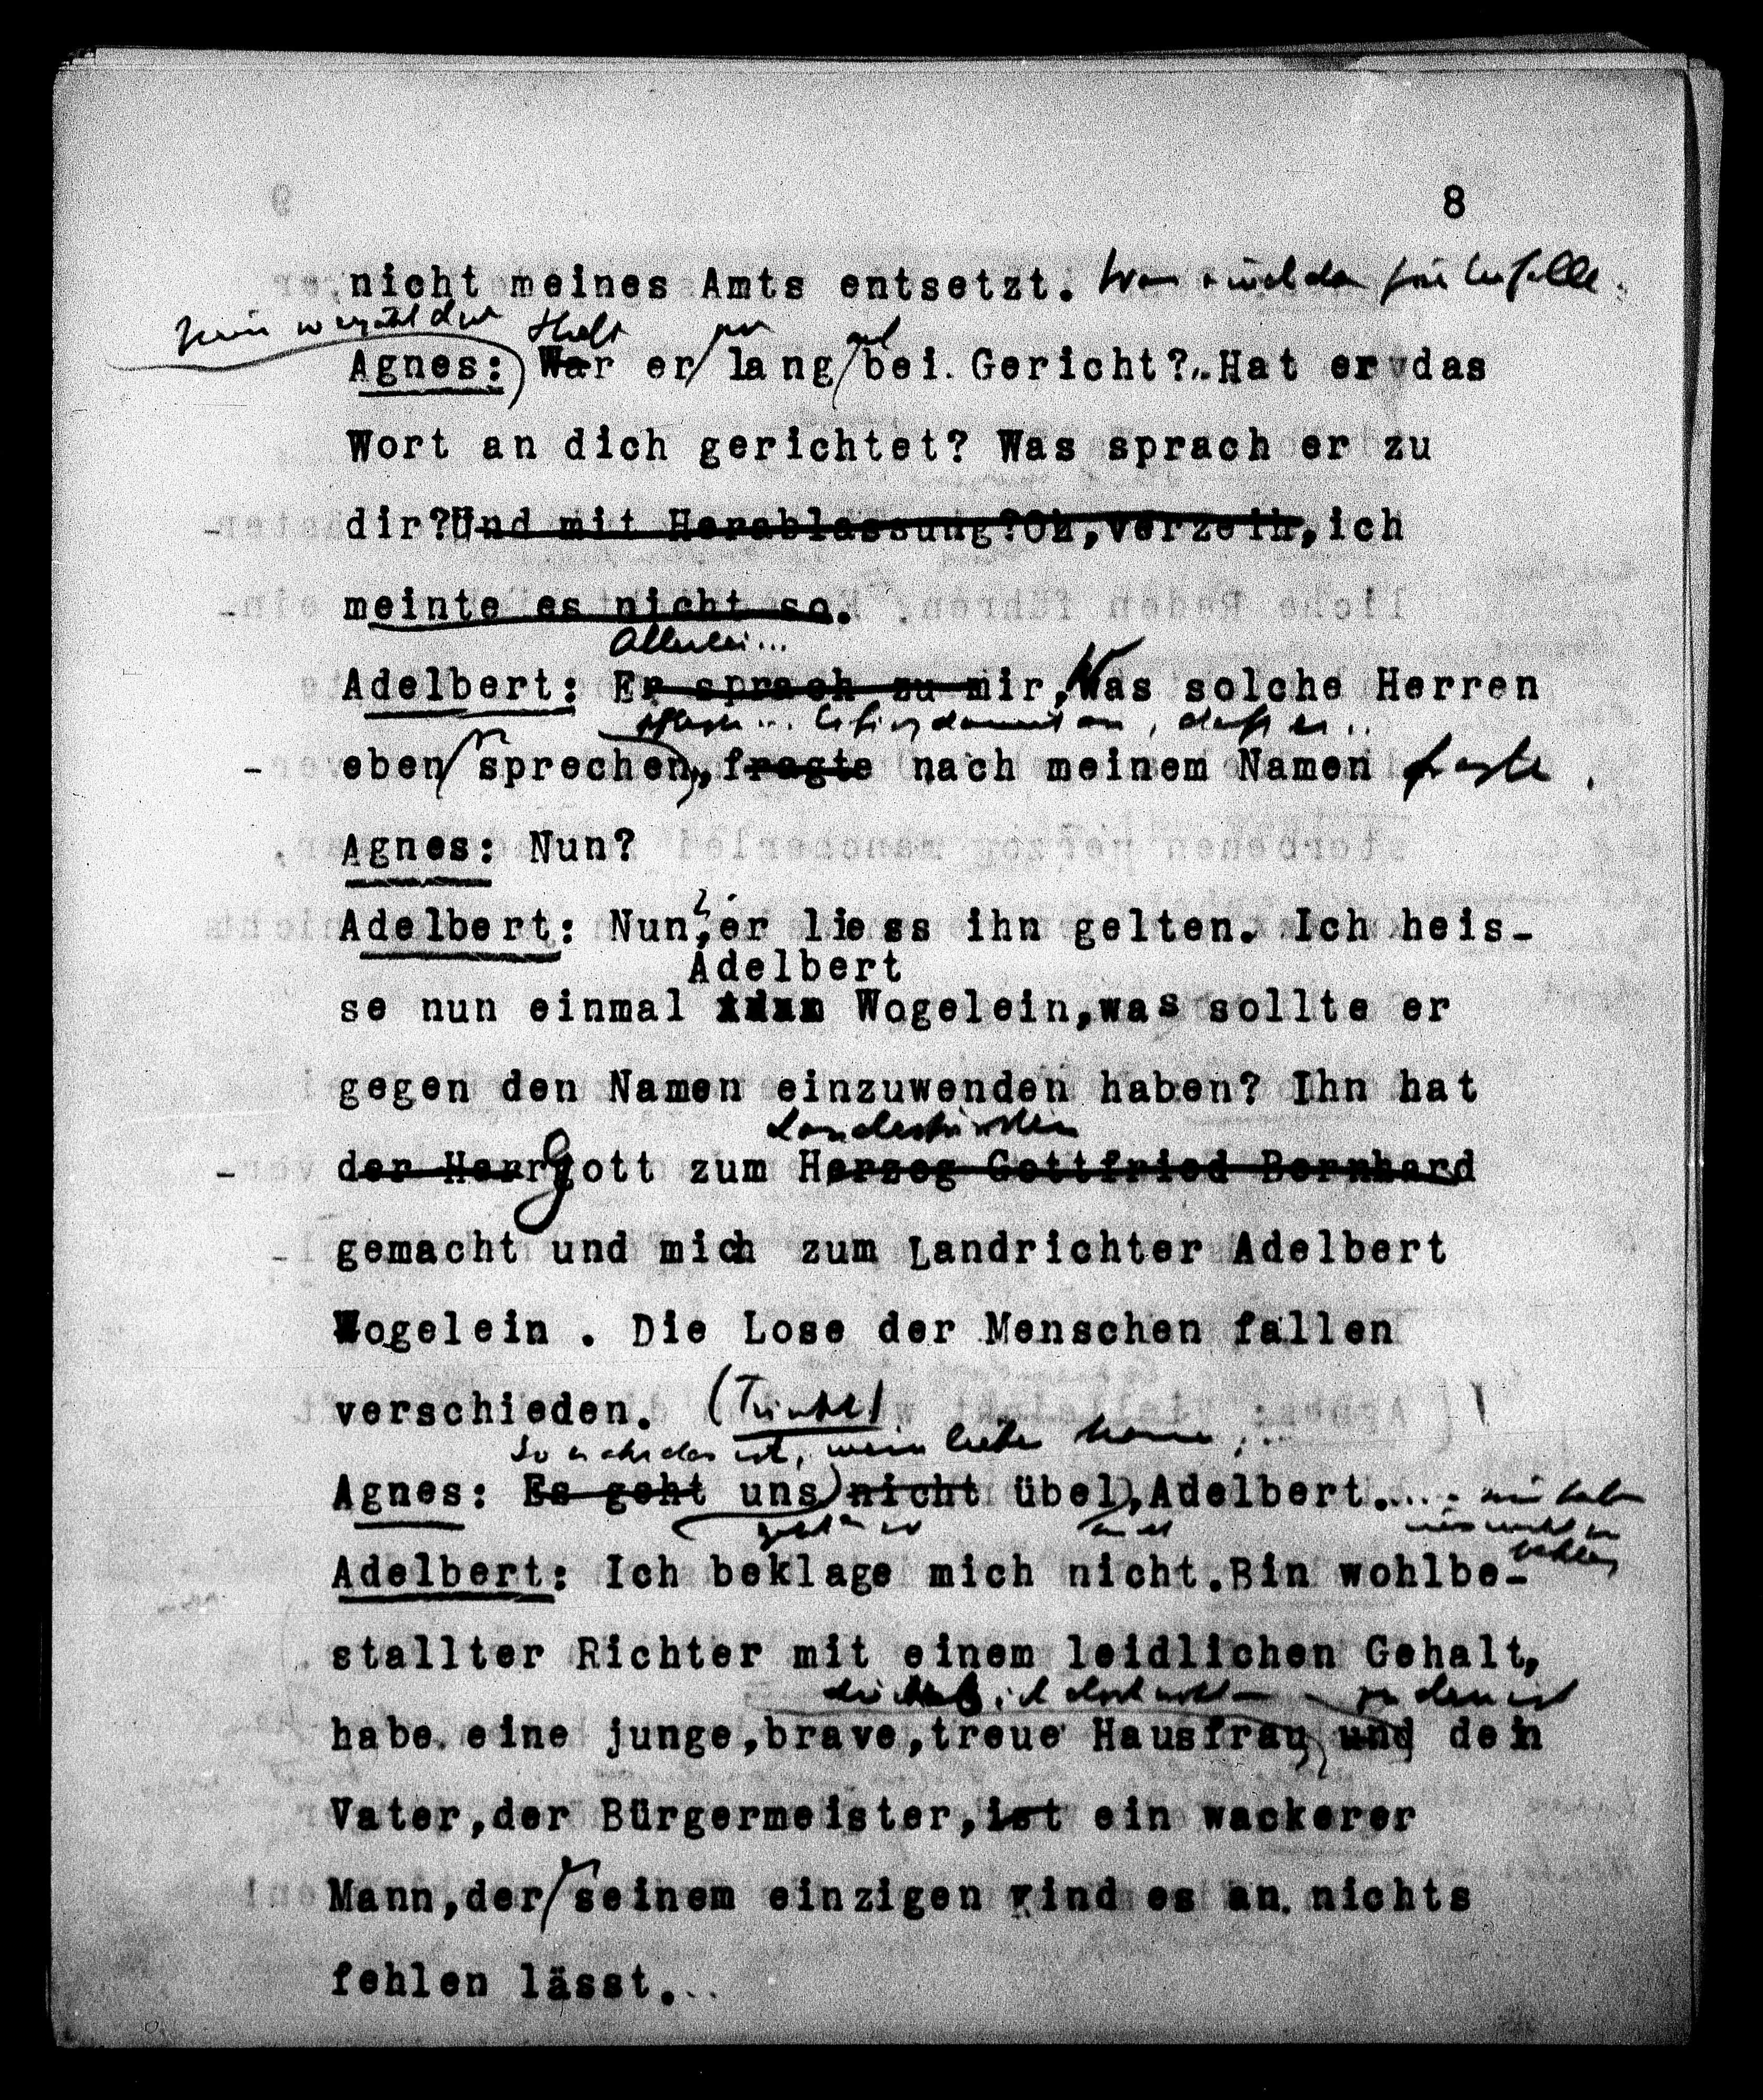 8
nicht meines Amts entsetzt.
Agnes: War er lang bei Gericht? Hat er das
Wort an dich gerichtet? Was sprach er zu
dir? Und mit Herablassung? Oh, verzeih, ich
meinte es nicht so.
Allerlei...
Adelbert: Er sprach zu mir, Was solche Herren
eben sprechen, fragte nach meinem Namen fragte.
Agnes: Nun?
Adelbert: Nun, er liess ihn gelten. Ich heis-
Adelbert
se nun einmal Wogelein, was sollte er
gegen den Namen einzuwenden haben? Ihn hat
Landesfürsten
der Herrgott zum Herzog Gottfried Bernhard
gemacht und mich zum Landrichter Adelbert
Wogelein . Die Lose der Menschen fallen
verschieden. (Trinkt)
Agnes: Es geht uns nicht übel, Adelbert....
Adelbert: Ich beklage mich nicht. Bin wohlbe-
stallter Richter mit einem leidlichen Gehalt,
zudem ist
habe eine junge, brave, treue Hausfrau und dein
Vater, der Bürgermeister, ist ein wackerer
es
Mann, der seinem einzigen Kind es an nichts
fehlen lässt...